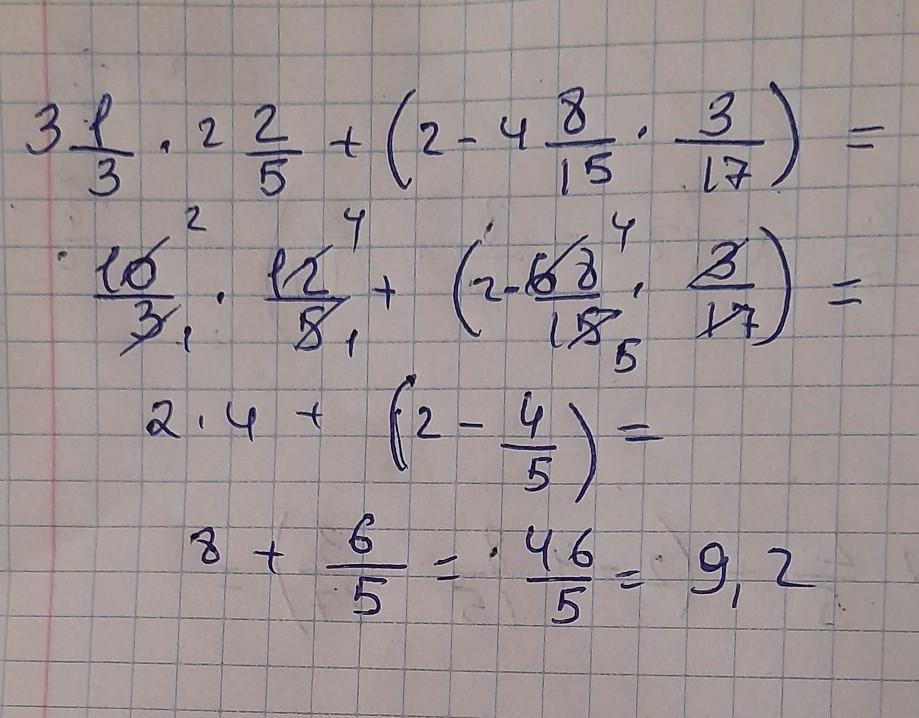 3 1/3 · 2 2/5 + (2 - 4 8/15 · 3/17) =
10/3 2 1 · 12/5 4 1 + (2 - 68/15 4 5 · 3/17) =
2 · 4 + (2 - 4/5) =
8 + 6/5 = 46/5 = 9,2